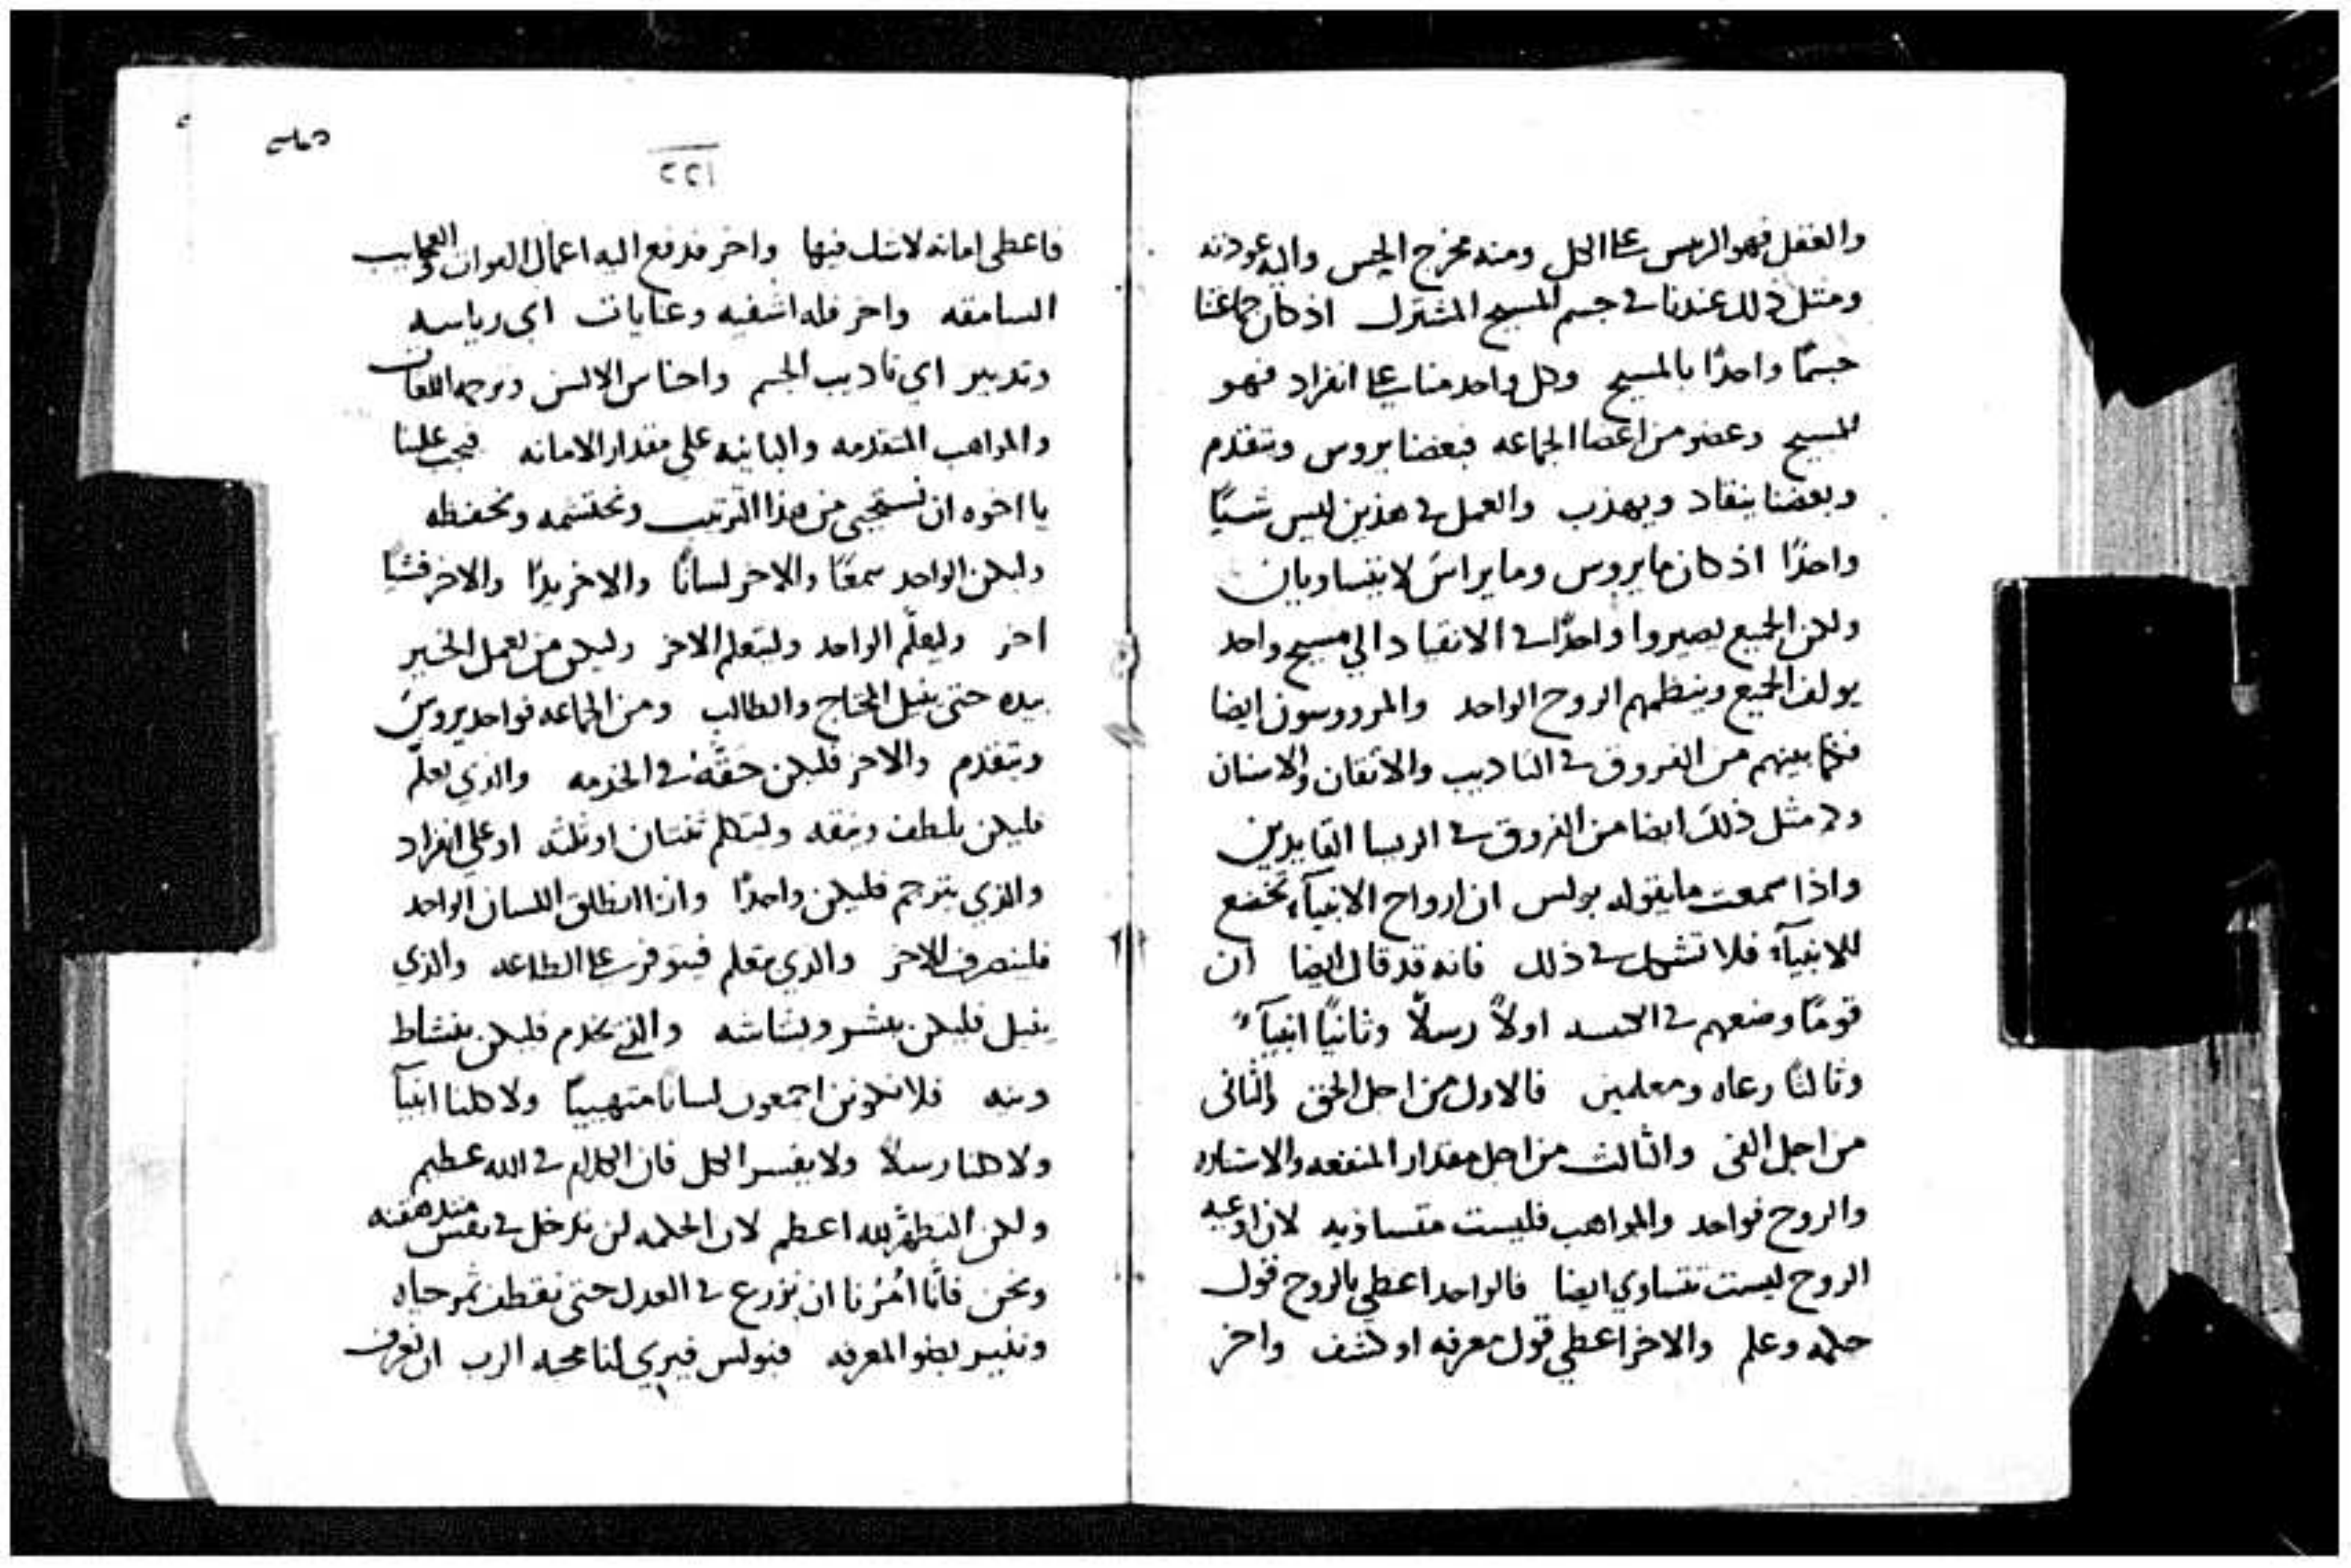 والعقل فهو الريس علي الكل ومنه مخرج الحس واليه عودته
ومثل ذلك عندنا في جسم المسيح المشترك اذ كان جماعتنا
جسمًا واحدًا بالمسيح وكل واحد منا علي انفراد فهو
للمسيح وعضو من اعضا الجماعه فبعضنا يروس ويتقدم
وبعضنا ينقاد ويهذب والعمل في هذين ليس شيًا
واحدًا اذ كان ما يروس وما يراس لا يتساويان
ولكن الجميع يصيروا واحدًا في الانقياد الي مسيح واحد
يولف الجميع وينظمهم الروح الواحد والمرووسون ايضا
فكم بينهم من الفروق في التاديب والاتقان والاسنان
وكم مثل ذلك ايضا من الفروق في الريسا القايدين
واذا سمعت ما يقوله بولس ان ارواح الانبيآء تخضع
للانبيآء فلا تشك في ذلك فانه قد قال ايضا ان
قومًا وضعهم في الكنيسه اولاً رسلاً وثانيًا انبيآءً
وثالثًا رعاه ومعلمين فالاول من اجل الحق والثاني
من اجل الفي والثالث من اجل مقدار المنفعه والاستناره
والروح فواحد والمواهب فليست متساويه لان اوعيه
الروح ليست تتساوي ايضا فالواحد اعطي بالروح قول
حكمه وعلم والاخر اعطي قول معرفه او كشف واخر
٢٢١
فاعطي امانه لا شك فيها واخر فدفع اليه اعمال القوات والعجايب
السامقه واخر فله اشفيه وعنايات اي رياسه
وتدبير اي تاديب الجسم واجناس الالسن وترجمه اللغات
والمواهب المتقدمه والثانيه علي مقدار الامانه فيجب علينا
يا اخوه ان نستحيي من هذا الترتيب ونحتشمه ونحفظه
وليكن الواحد سمعًا والاخر لسانًا والاخر يدًا والاخر فشيًا
اخر وليعلّم الواحد وليتعلم الاخر وليكن من يعمل الخير
بيده حتي ينيل المحتاج والطالب ومن الجماعه فواحد يروس
ويتقدم والاخر فليكن حقّه في الخدمه والذي يعلّم
فليكن بلطف ورفقه وليتكلم نفسان او ثلثه او علي انفراد
والذي يترجم فليكن واحدًا واذا انطلق اللسان الواحد
فلينصرف الاخر والذي يتعلم فيتوفر علي الطاعه والذي
ينيل فليكن ببشر وبشاشه والذي يخدم فليكن بنشاط
ونيه فلا نكونن اجمعون لسانا متهيبًا ولا كلنا انبيآ
ولا كلنا رسلاً ولا يفسر الكل فان الكلام في الله عظيم
ولكن التطهّر لله اعظم لان الحكمه لن تدخل في نفس
ونحن فانّا امُرنا ان نزرع في العدل حتي نقطف ثمر حياه
ونفسر بضو المعرفه فبولس فيري لنا محبه الرب ان نعرف